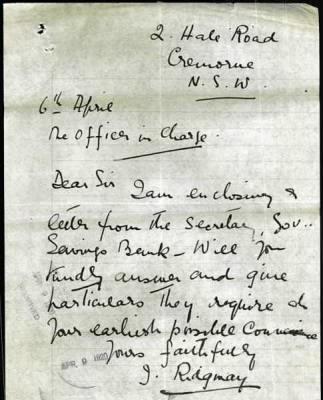 2. Hale Road
Cremorne
N. S. W.
6th April
The Officer in Charge.
Dear Sir I am enclosing a
letter from the Secretary, Gov..
Savings Bank - Will you
kindly answer and give
particulars they require at
your earliest possible
yours faithfully
J. Ridgway
APR. 9 1920